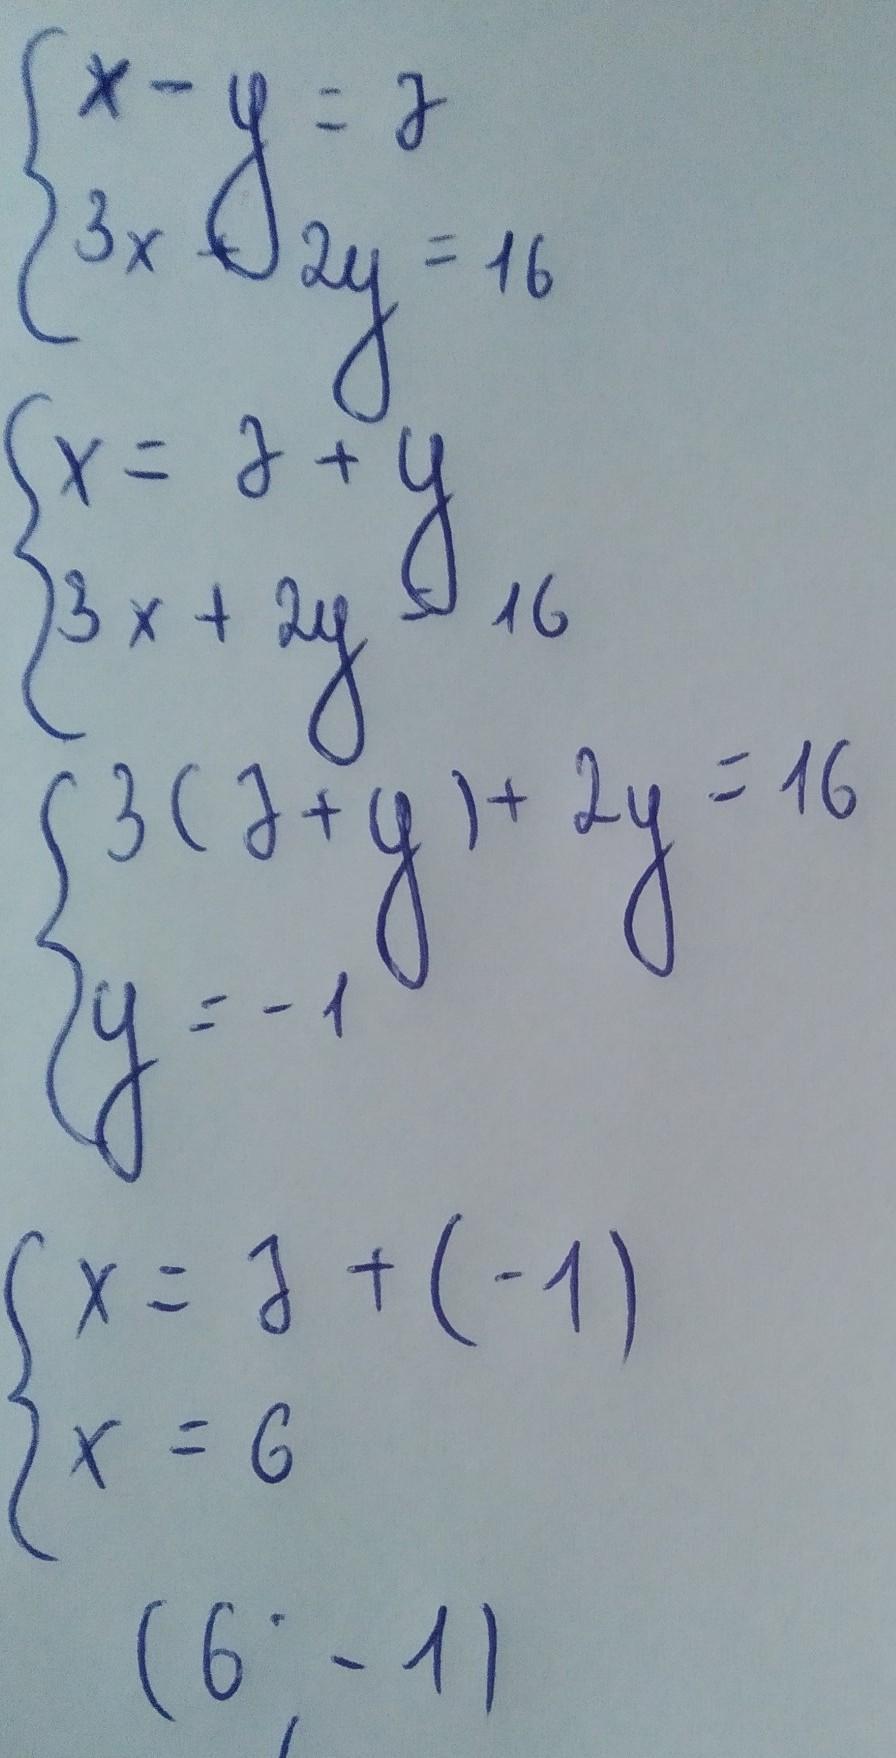 x - y = 7
3x + 2y = 16
x = 7 + y
3x + 2y = 16
3(7+y) + 2y = 16
y = -1
x = 7 + (-1)
x = 6
(6; -1)